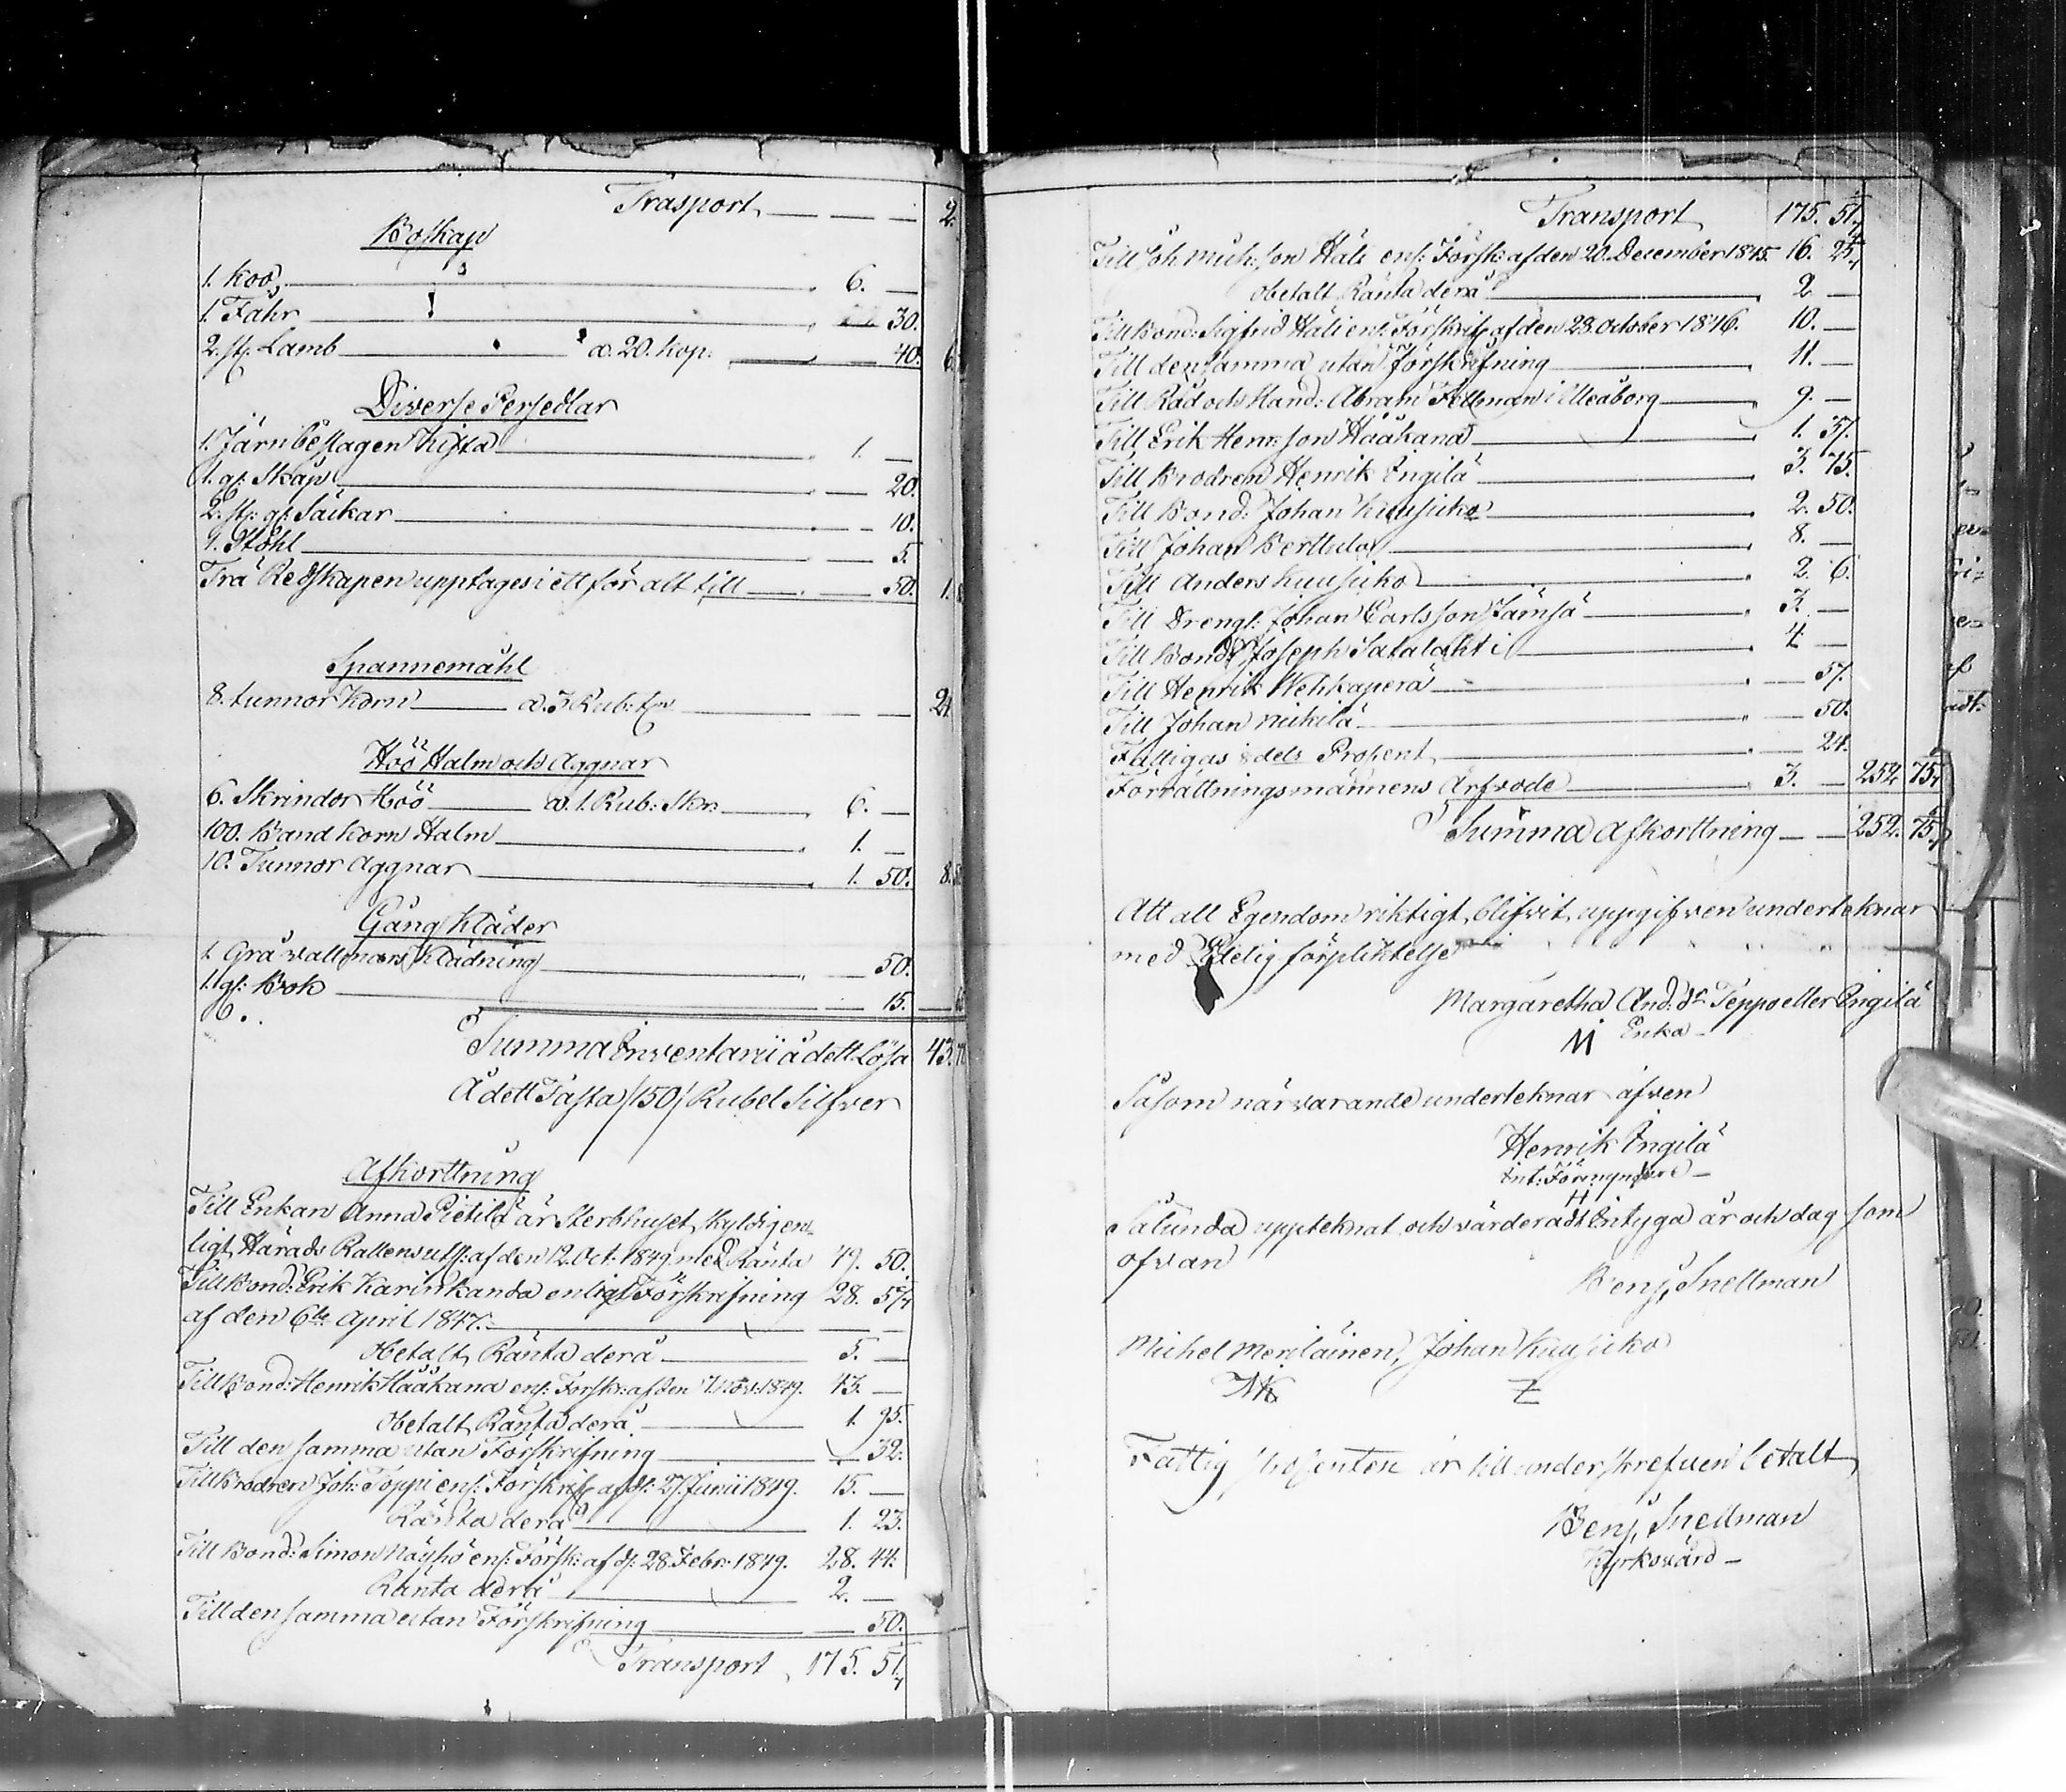 Trasport 2
Boskap
1. Koo 6. —
1. Fåhr — 30.
2. st: Lamb a. 20. Kop: — 40. 6.
Diverse Persedlar
1. Järnbeslagen Kista 1. —
1. gl: Skåp — 20.
2. st: gl: Säckar — 10.
1. Stohl — 5.
Trä Redskapen upptages i ett för alt till — 50. 1.
Spannemåhl
8. tunnor Korn a. 3 Rub: tn — 24
Höö Halm och Aggnar
6. Skrindor Höö a. 1. Rub: Skr. 6. —
100. Band Korn Halm 1. —
10. Tunnor Aggnar 1. 50. 8.
Gång Kläder
1. Grå vallmans Klädning — 50.
1. gl: Brok — 15. —
Summa Inventarii å dett Lösa 43.
Å dett Fasta /150/ Rubel Silfver
Afkorttning
Till Enkan Anna Pietilä är Sterbhuset skyldig en-
ligt Härads Rättens utsl: af den 12. Oct: 1849 med Ränta 49. 50.
Till Bond: Erik Karinkanda enligt Förskrifning 28. 57
af den 6te April 1847. — —
Obetalt Ränta derå 5. —
Till Bond: Henrik Hääkana enl: Förskr: af den 7. Nov: 1849. 43. —
Obetalt Ränta derå 1. 95.
Till den samma utan Förskrifning — 32.
Till Brodren Joh: Toppi enl: Förskrif: af d: 27. Junii 1849. 15. —
Ränta derå 1. 23.
Till Bond: Simon Näyhö enl: Försk: af d: 28. Febr: 1849. 28. 44.
Ränta derå 2. —
Till den samma utan Förskrifning — 50.
Transport 175. 51
Transport 175. 51
Till Joh. Mich:son Häli enl: Försk: af den 20. December 1845. 16. 24
Obetalt Ränta derå 2 —
Till Bond: Sigfrid Häli enl: Förskrif: af den 23. October 1846. 10. —
Till den samma utan Förskrifning 11. —
Till Råd och Hand: Abram Fellman i Uleåborg 9. —
Till Erik Henr:son Hääkana 1. 57.
Till Brodren Henrik Engilä 3. 75.
Till Bond: Johan Kuusiko 2. 50.
Till Johan Berttula 8. —
Till Anders Kuusiko 2. 6.
Till Drengl: Johan Carlsson Jämsä 3. —
Till Bond: Joseph Satalahti 4 —
Till Henrik Wehkaperä — 57.
Till Johan Mikilä — 50.
Fattigas dels Prosent — 24.
Förrättningsmännens Arfvode 3. — 252 75
Summa Afkorttning — 252. 75
Att all Egendom riktigt blifvit uppgifven underteknar
med Edelig förpliktelse
Margaretha And:dr Teppo eller Engilä
M Enka
Såsom närvarande underteknar äfven
Henrik Engilä
Int: Förmyndare
H
Sålunda uppteknat och värderadt Intyga år och dag som
ofvan
Benj, Snellman
Michel Meriläinen, Johan Kuusiko
Fattig prosenten är till underskrefven betalt
Benj, Snellman
Kyrkovärd